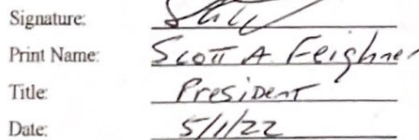 Signature:
Print Name: Scott A Feighner
Title: President
Date: 5/1/22